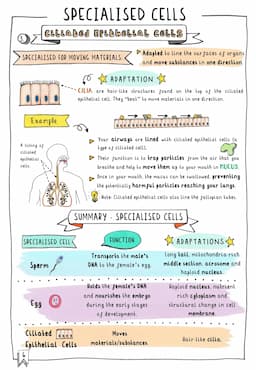 SPECIALISED CELLS
CILIATED EPITHELIAL CELLS
SPECIALISED FOR MOVING MATERIALS
Adapted to line the surfaces of organs
and move substances in one direction.
ADAPTATION
CILIA are hair-like structures found on the top of the ciliated
epithelial cell. They "beat" to move materials in one direction.
Example
A lining of
ciliated
epithelial
cells
Your airways are lined with ciliated epithelial cells (a
type of ciliated cell).
Their function is to trap particles from the air that you
breathe and help to move them up to your mouth in MUCUS.
Once in your mouth, the mucus can be swallowed, preventing
the potentially harmful particles reaching your lungs.
Note: Ciliated epithelial cells also line the fallopian tubes.
SUMMARY - SPECIALISED CELLS
SPECIALISED CELL
FUNCTION
ADAPTATIONS
Sperm
Transports the male's
DNA to the female's egg.
Long tail, mitochondria rich
middle section, acrosome and
haploid nucleus.
Egg
Holds the female's DNA
and nourishes the embryo
during the early stages
of development.
Haploid nucleus, nutrient
rich cytoplasm and
structural change in cell
membrane.
Ciliated
Epithelial Cells
Moves
materials/substances.
Hair-like cilia.